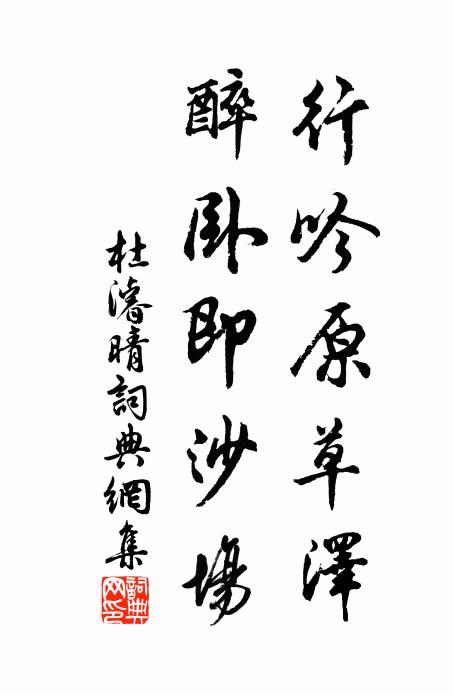 行吟原草澤
醉卧即沙場
杜濬晴詞典網集
詞典